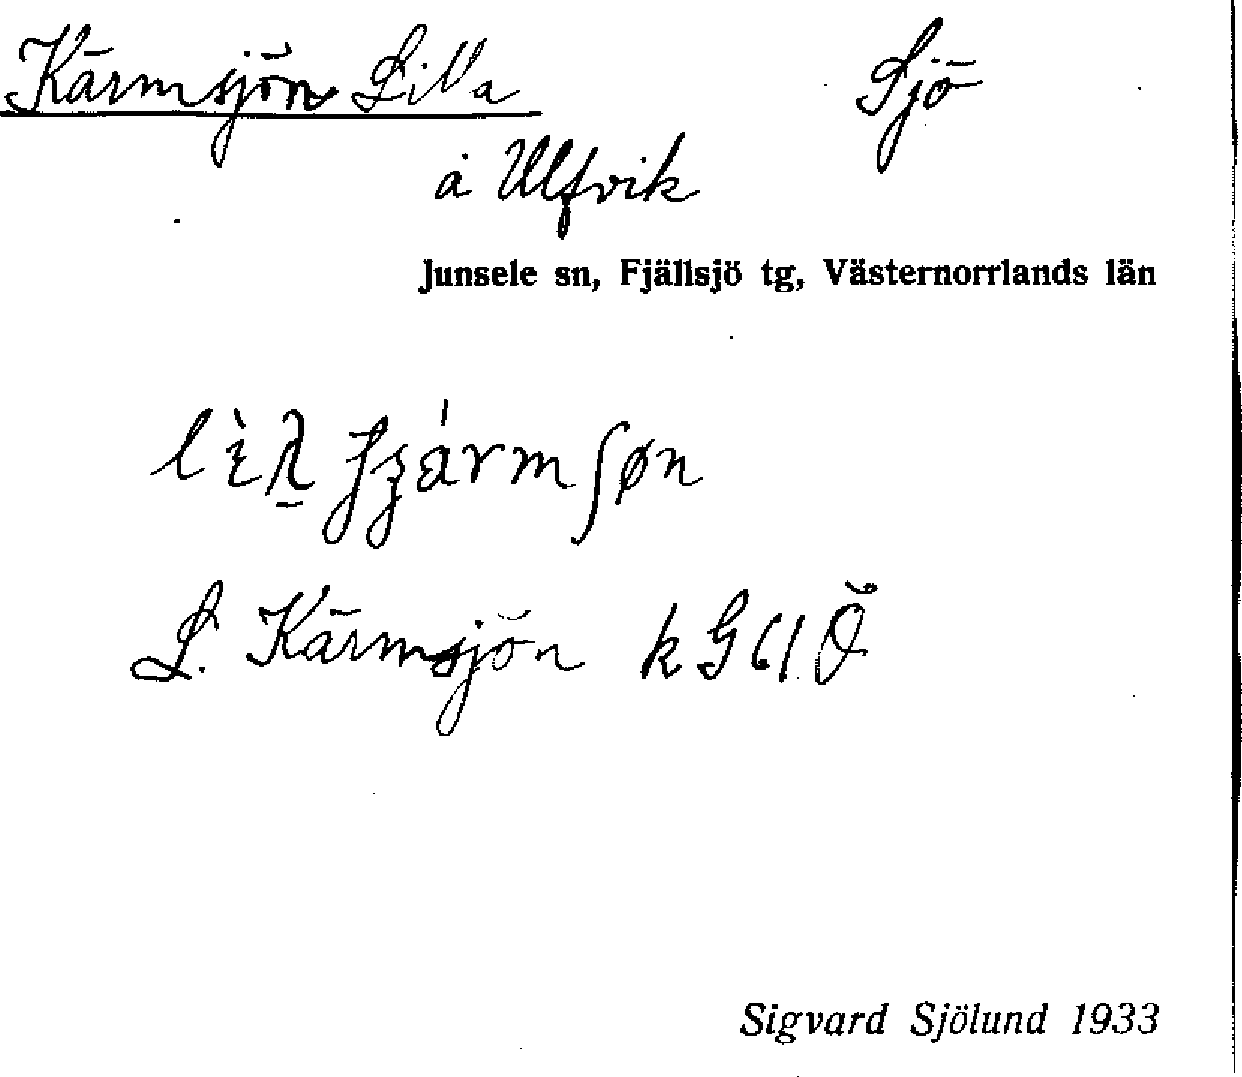 Kärmsjön Lilla Sjö
å Ulfvik
Junsele sn, Fjällsjö tg, Västernorrlands län
L. Kärmsjön k G61Ö
Sigvard Sjölund 1933